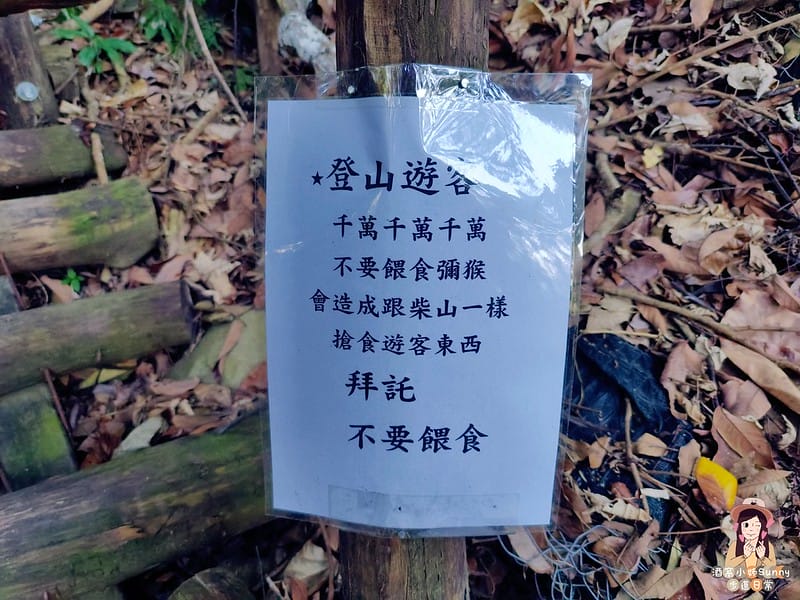 ★登山遊客
千萬千萬千萬
不要餵食彌猴
會造成跟柴山一樣
搶食遊客東西
拜託
不要餵食
酒客小姐Sunny